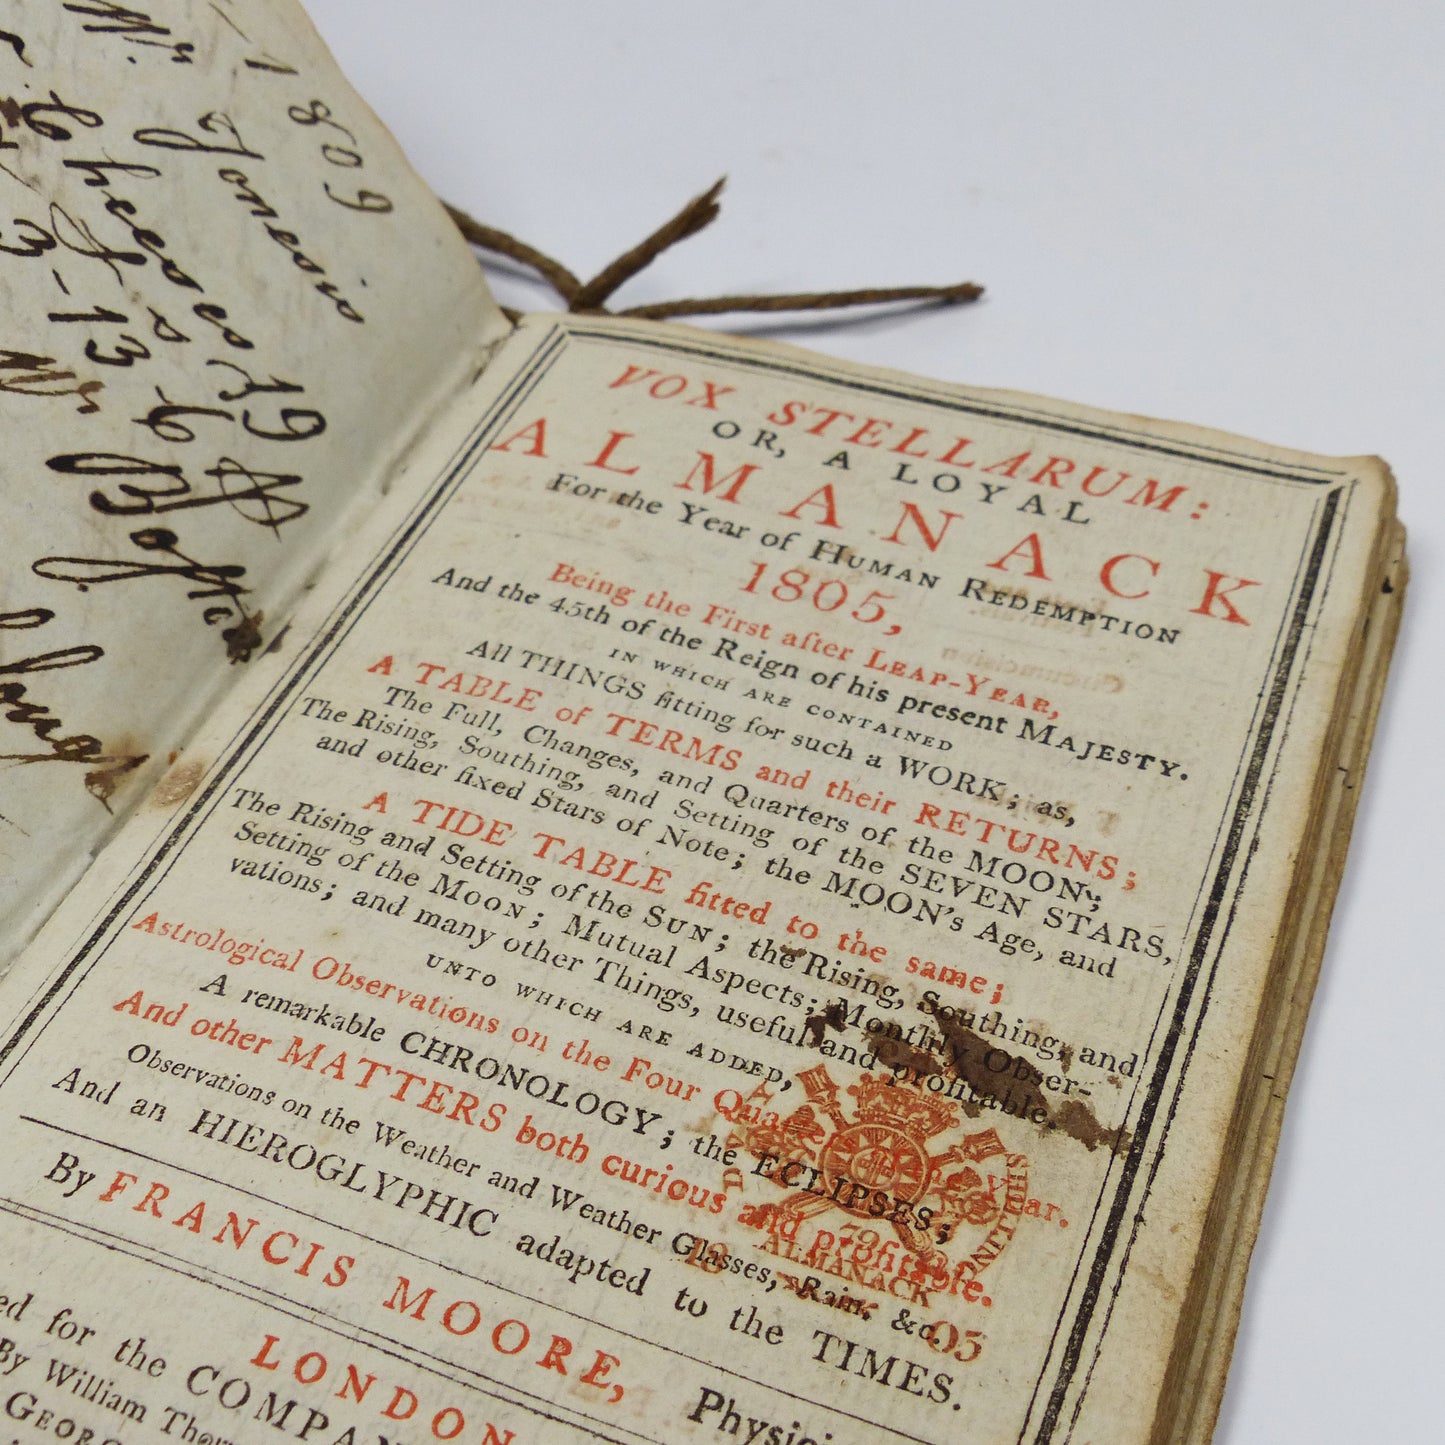 1809
Mr Jonesis
Cheeses 19
3-13-6
Mr
VOX STELLARUM:
OR, A LOYAL
ALMANACK
For the Year of HUMAN REDEMPTION
1805,
Being the First after LEAP-YEAR,
And the 45th of the Reign of his present MAJESTY.
IN WHICH ARE CONTAINED
All THINGS fitting for such a WORK; as,
A TABLE of TERMS and their RETURNS;
The Full, Changes, and Quarters of the MOON;
The Rising, Southing, and Setting of the SEVEN STARS,
and other fixed Stars of Note; the MOON's Age, and
A TIDE TABLE fitted to the same;
The Rising and Setting of the SUN; the Rising, Southing, and
Setting of the MOON; Mutual Aspects; Monthly Obser-
vations; and many other Things, useful and profitable.
UNTO WHICH ARE ADDED,
Astrological Observations on the Four Quarters of the Year.
A remarkable CHRONOLOGY; the ECLIPSES;
And other MATTERS both curious and profitable.
Observations on the Weather and Weather Glasses, Rain, &c.
And an HIEROGLYPHIC adapted to the TIMES.
By FRANCIS MOORE, Physici
LONDON
ed for the COMPANY
By William Thor
GEORG
SHILLING
ALMANACK
18 05